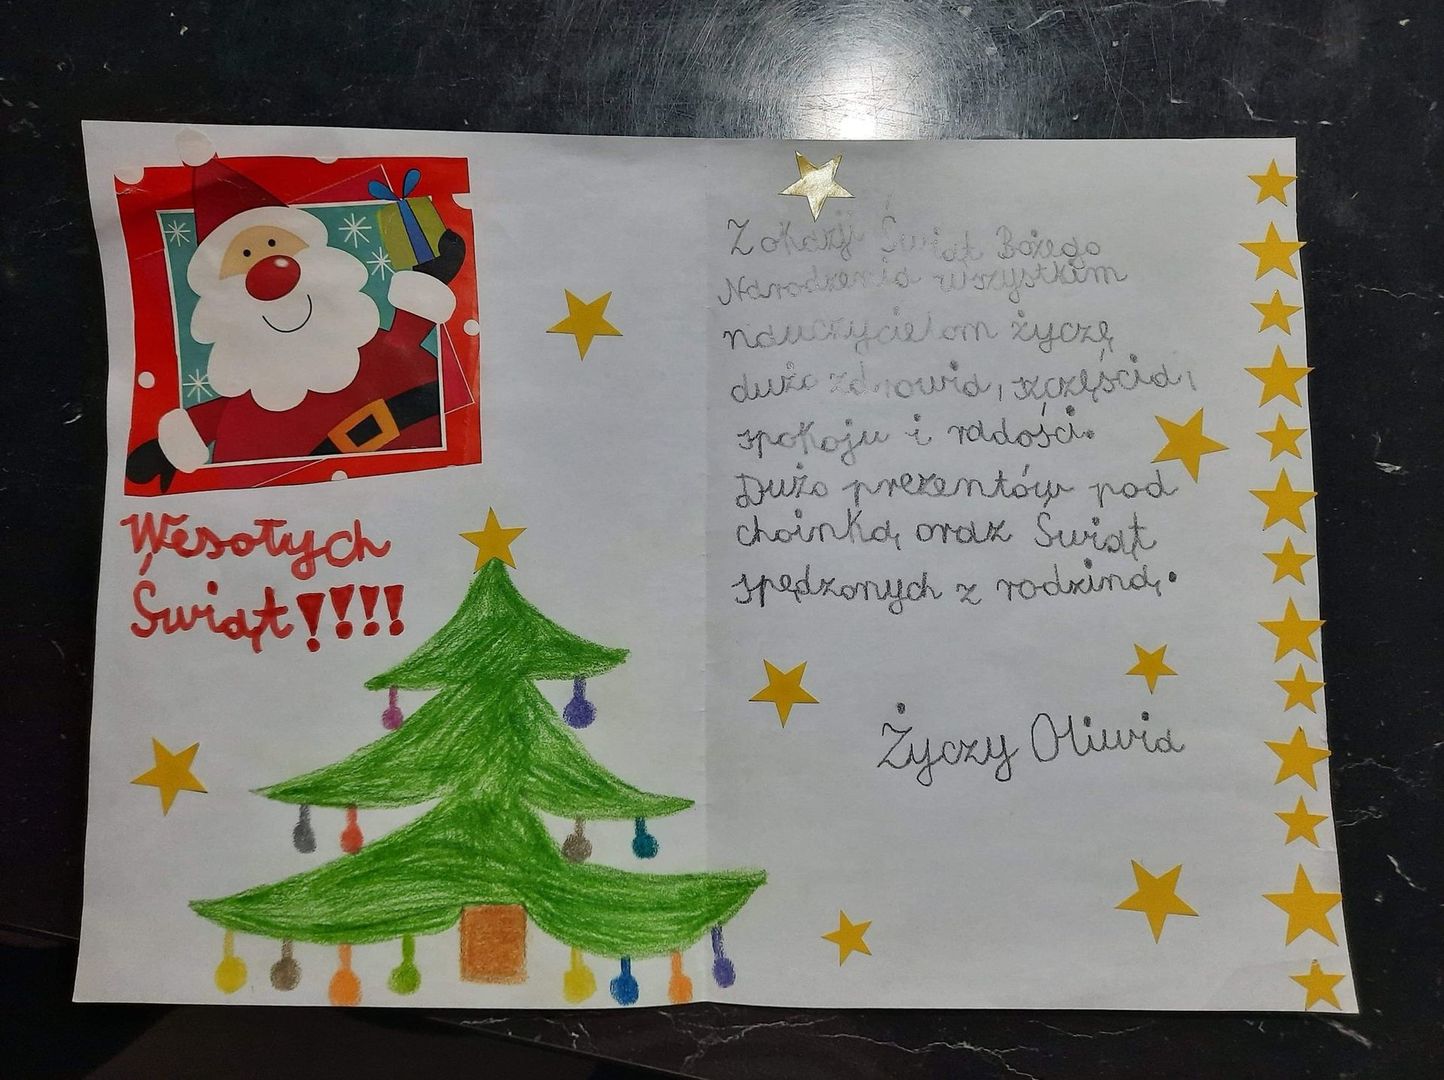 Wesołych
Świąt!!!!
Z okazji Świąt Bożego
Narodzenia wszystkim
nauczycielom życzę
dużo zdrowia, szczęścia,
spokoju i radości.
Dużo prezentów pod
choinką oraz Świąt
spędzonych z rodziną.
Życzy Oliwia